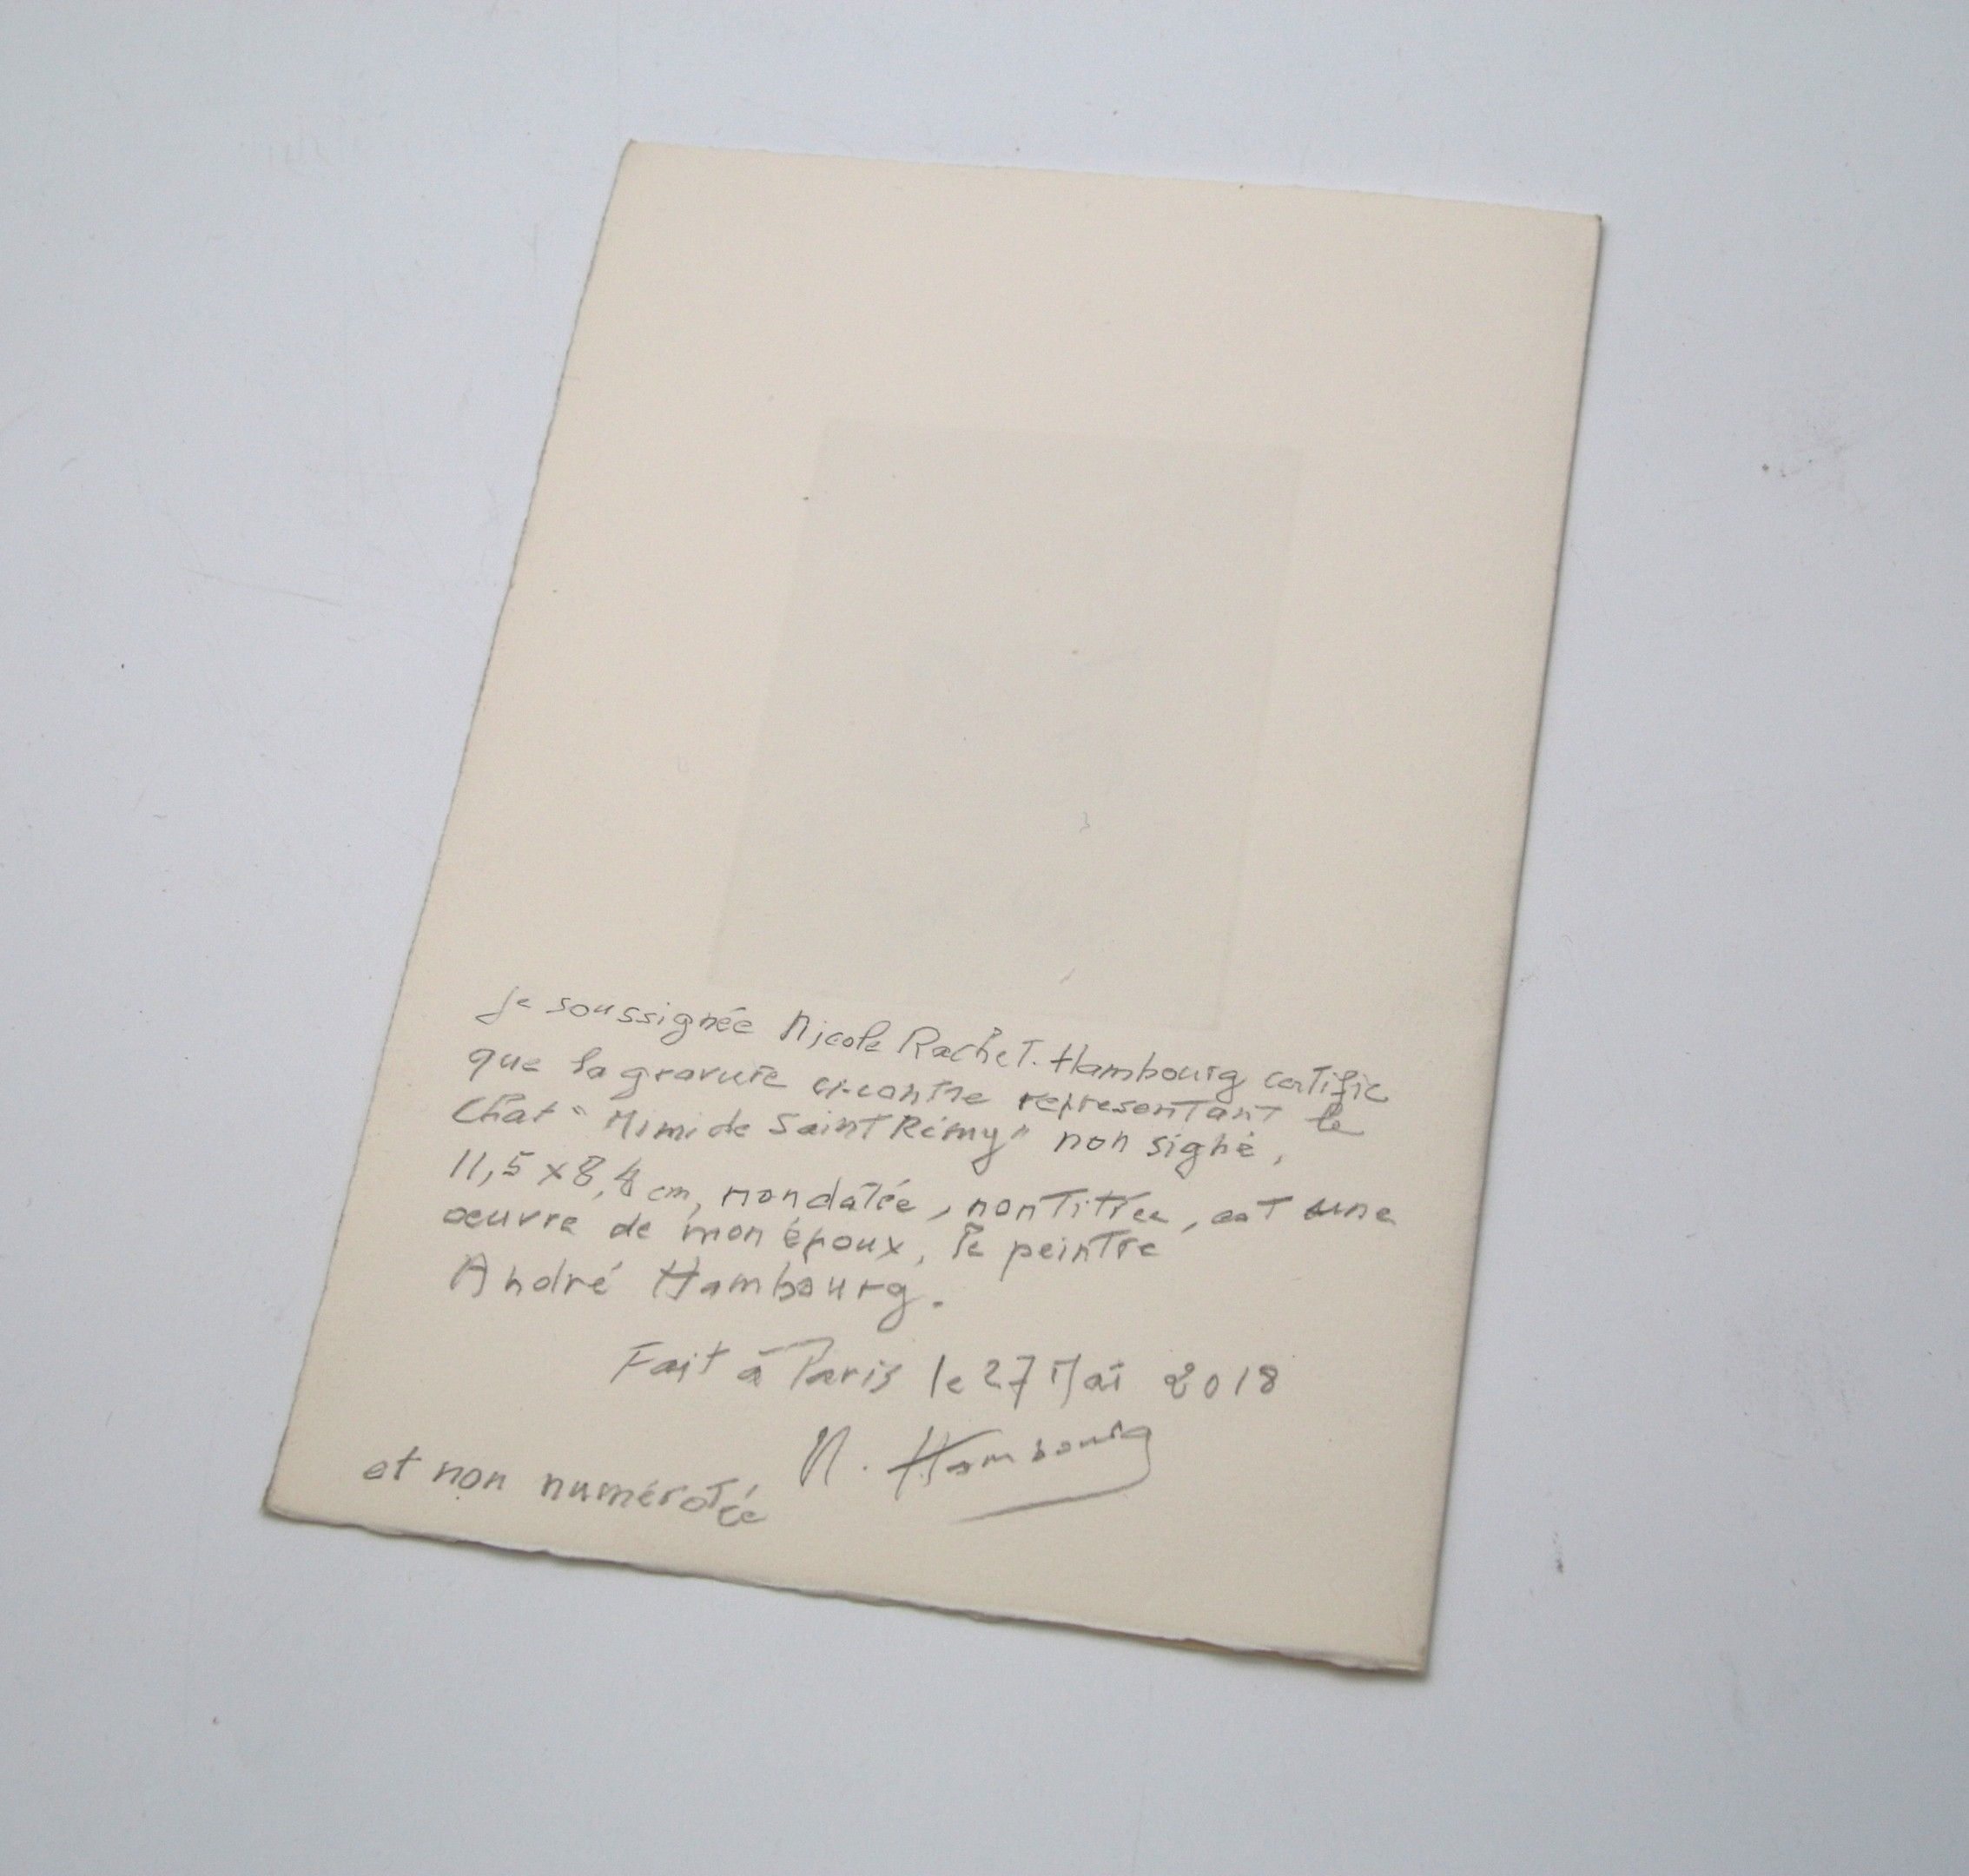 je soussignée Nicole Rachet-Hambourg certifie
que la gravure ci-contre representant le
Chat "Mimi de Saint Rémy" non signé,
11,5 x 8,4 cm, non datée, non titrée, est une
œuvre de mon époux, le peintre
André Hambourg.
Fait à Paris le 27 Mai 2018
N. Hambourg
et non numérotée